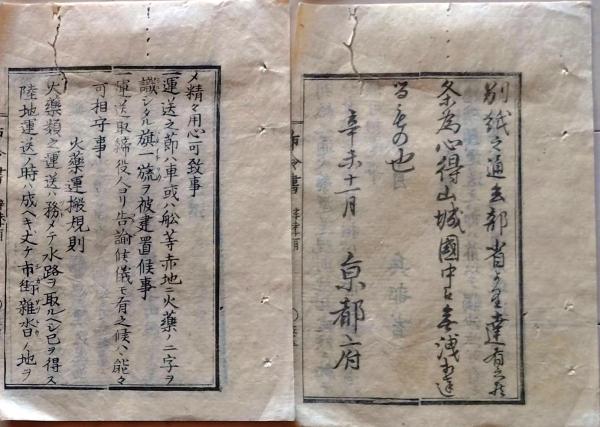 別紙之通兵部省より達有之候
条為心得山城國中に無洩相達
るもの也
辛未十一月 京都府
布令書
メ精々用心可致事
一運送之節ハ車或ハ舩等赤地ニ火藥ノ二字ヲ
識シタル旗一旒ヲ被建置候事
一運送取締役人ヨリ告諭候儀モ有之候ハヽ能々
可相守事
火藥運搬規則
一火藥類之運送ハ務メテ水路ヲ取ルヘシ已ヲ得ス
陸地運送ノ時ハ成ヘキ丈ケ市街雜沓ノ地ヲ